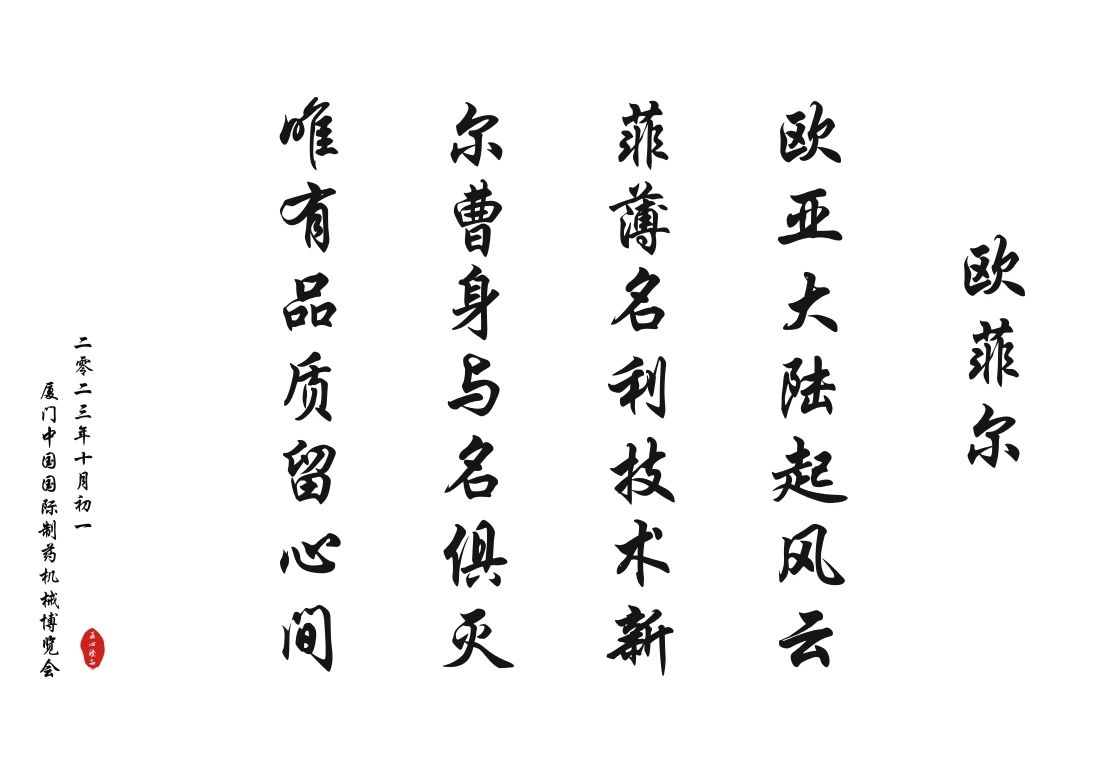 欧菲尔
欧亚大陆起风云
菲薄名利技术新
尔曹身与名俱灭
唯有品质留心间
二零二三年十月初一
厦门中国国际制药机械博览会
匠心臻品